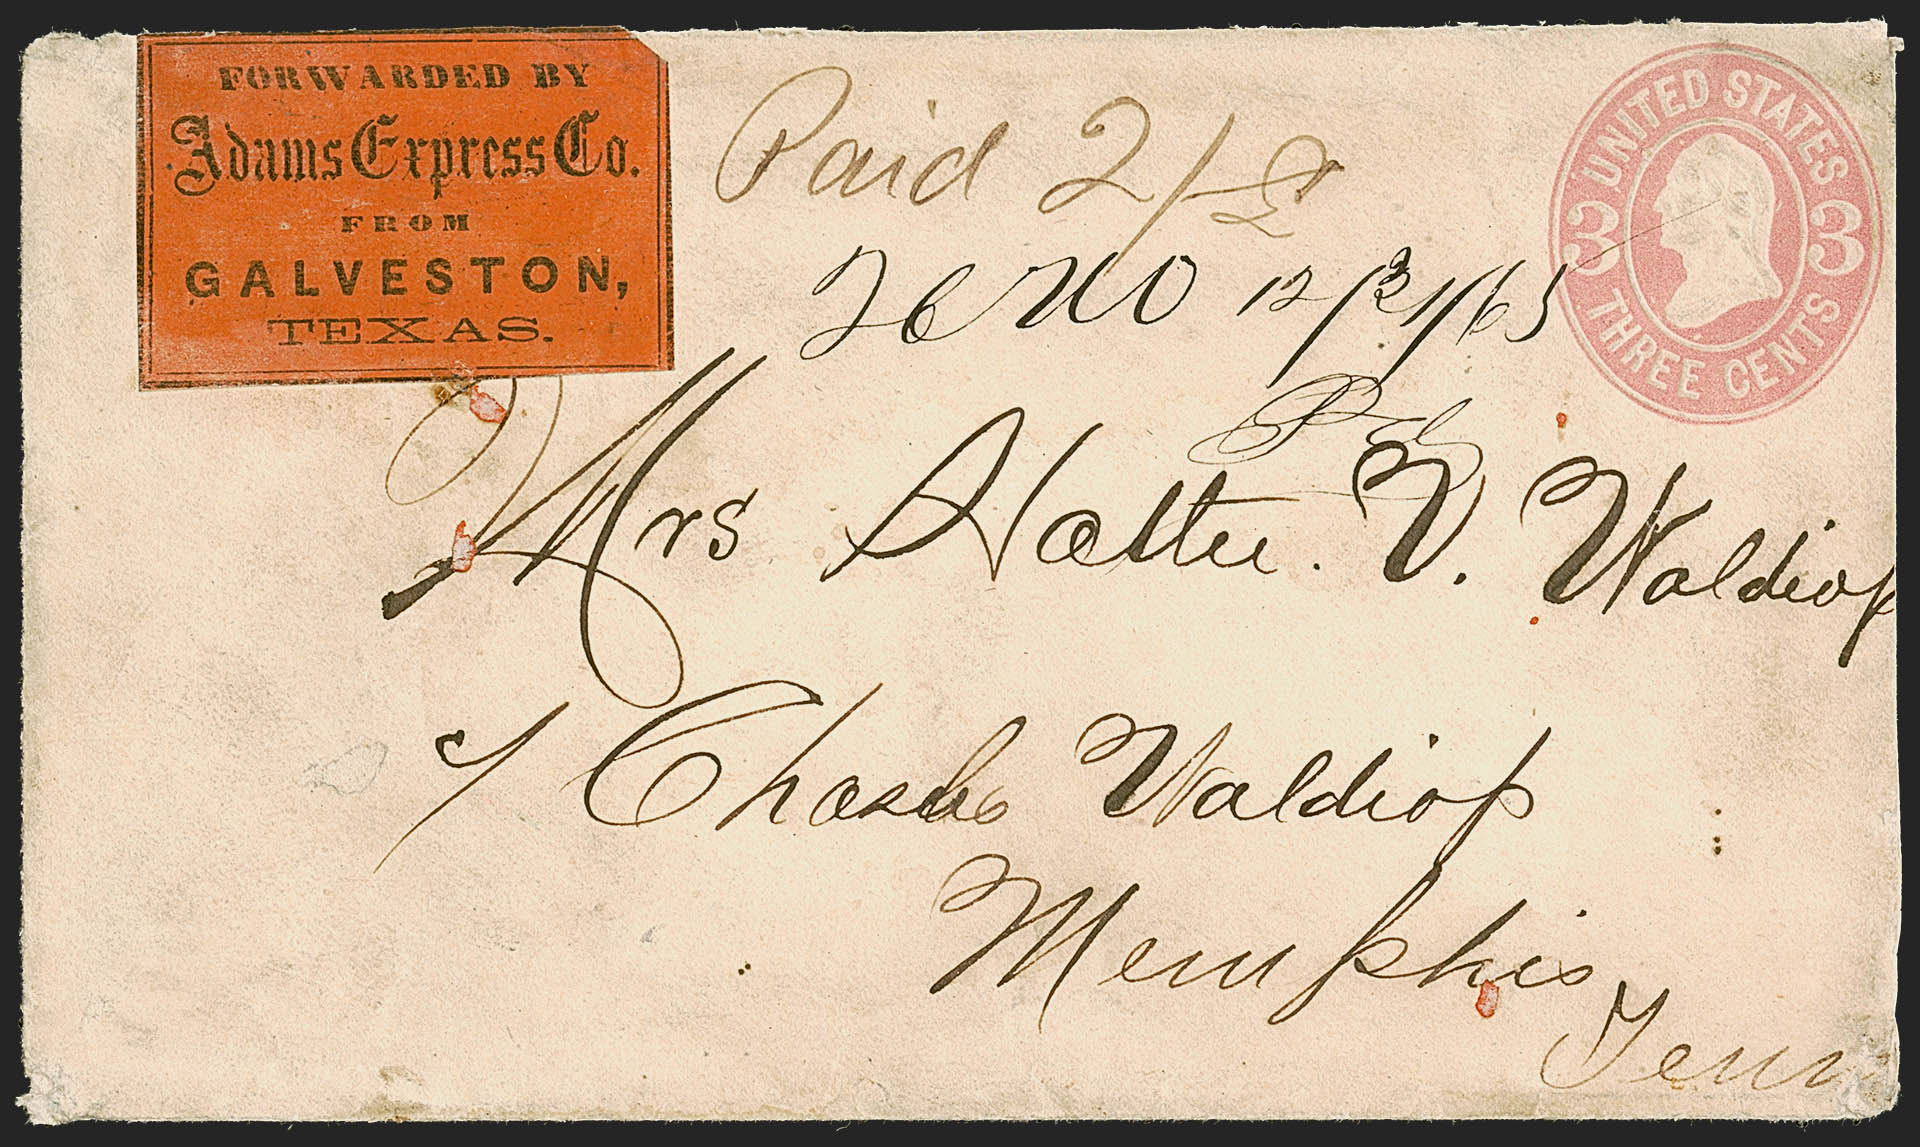 FORWARDED BY
Adams Express Co.
FROM
GALVESTON,
TEXAS.
Paid 2/
UNITED STATES
3 3
THREE CENTS
NO 12/31/65
Mrs Hattie. V. Waldrop
Waldrop
Memphis
Tenn